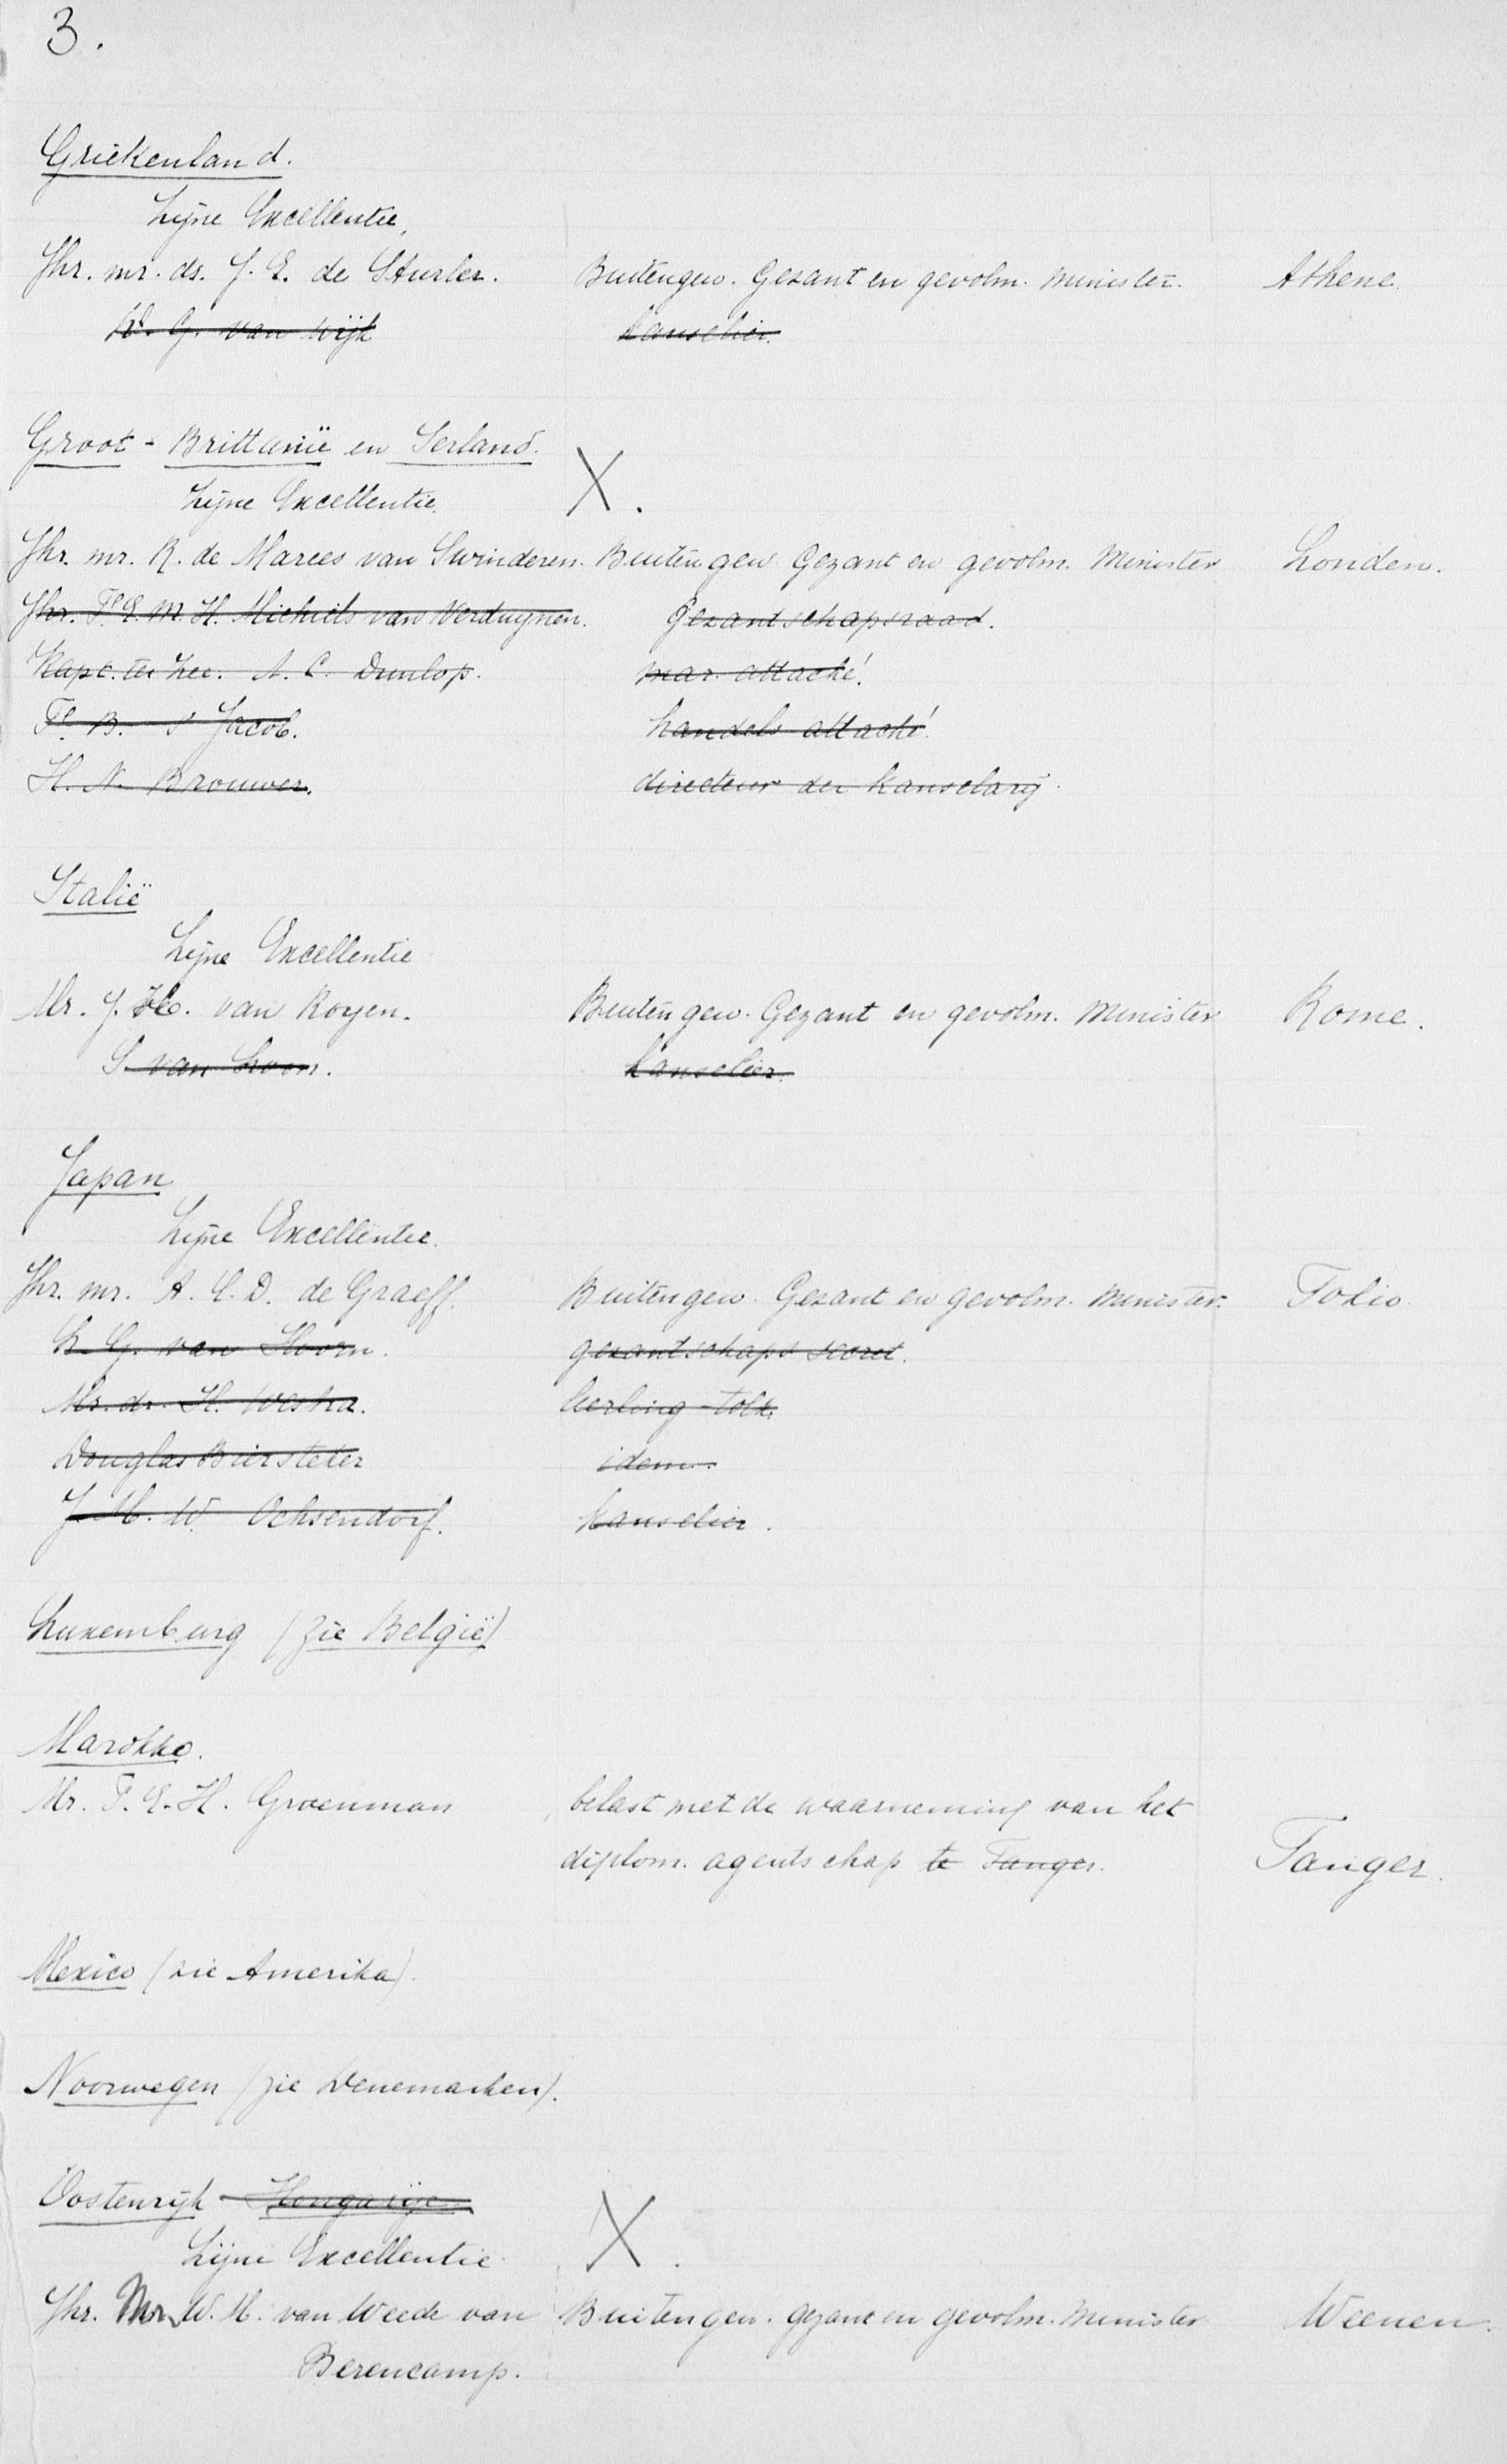 3.
Griekenland.
Zijne Excellentie,
Jhr. mr. ds. J. E. de Sturler. Buitengew. Gezant en gevolm. Minister. Athene.
G. van Wijk kanselier.
Groot-Brittanië en Ierland.
Zijne Excellentie. X.
Jhr. mr. R. de Marees van Swinderen. Buitengew. Gezant en gevolm. Minister Londen.
Jhr. F. E. M. H. Michiels van Verduynen. Gezandschapsraad.
Kapt. ter Zee. A. C. Dunlop. mar. attaché.
F. B. s' Jacob. handels attaché.
H. N. Brouwer. directeur der kanselarij.
Italië
Zijne Excellentie
Mr. J. H. van Royen. Buitengew. Gezant en gevolm. Minister Rome.
S. van Loon. kanselier.
Japan
Zijne Excellentie.
Jhr. mr. A. C. D. de Graeff. Buitengew. Gezant en gevolm. Minister. Tokio.
G. van Hoorn. gezantschaps secret.
Mr. dr. H. Westra. leerling-tolk.
Douglas Biersteker idem.
J. M. W. Ochsendorf. kanselier.
Luxemburg (zie België)
Marokko.
Mr. F. E. H. Groenman belast met de waarneming van het
diplom. agentschap te Tanger. Tanger.
Mexico (zie Amerika).
Noorwegen (zie Denemarken).
Oostenrijk - Hongarije
Zijne Excellentie. X.
Jhr. Mr. W. M. van Weede van Buitengew. gezant en gevolm. Minister Weenen.
Berencamp.